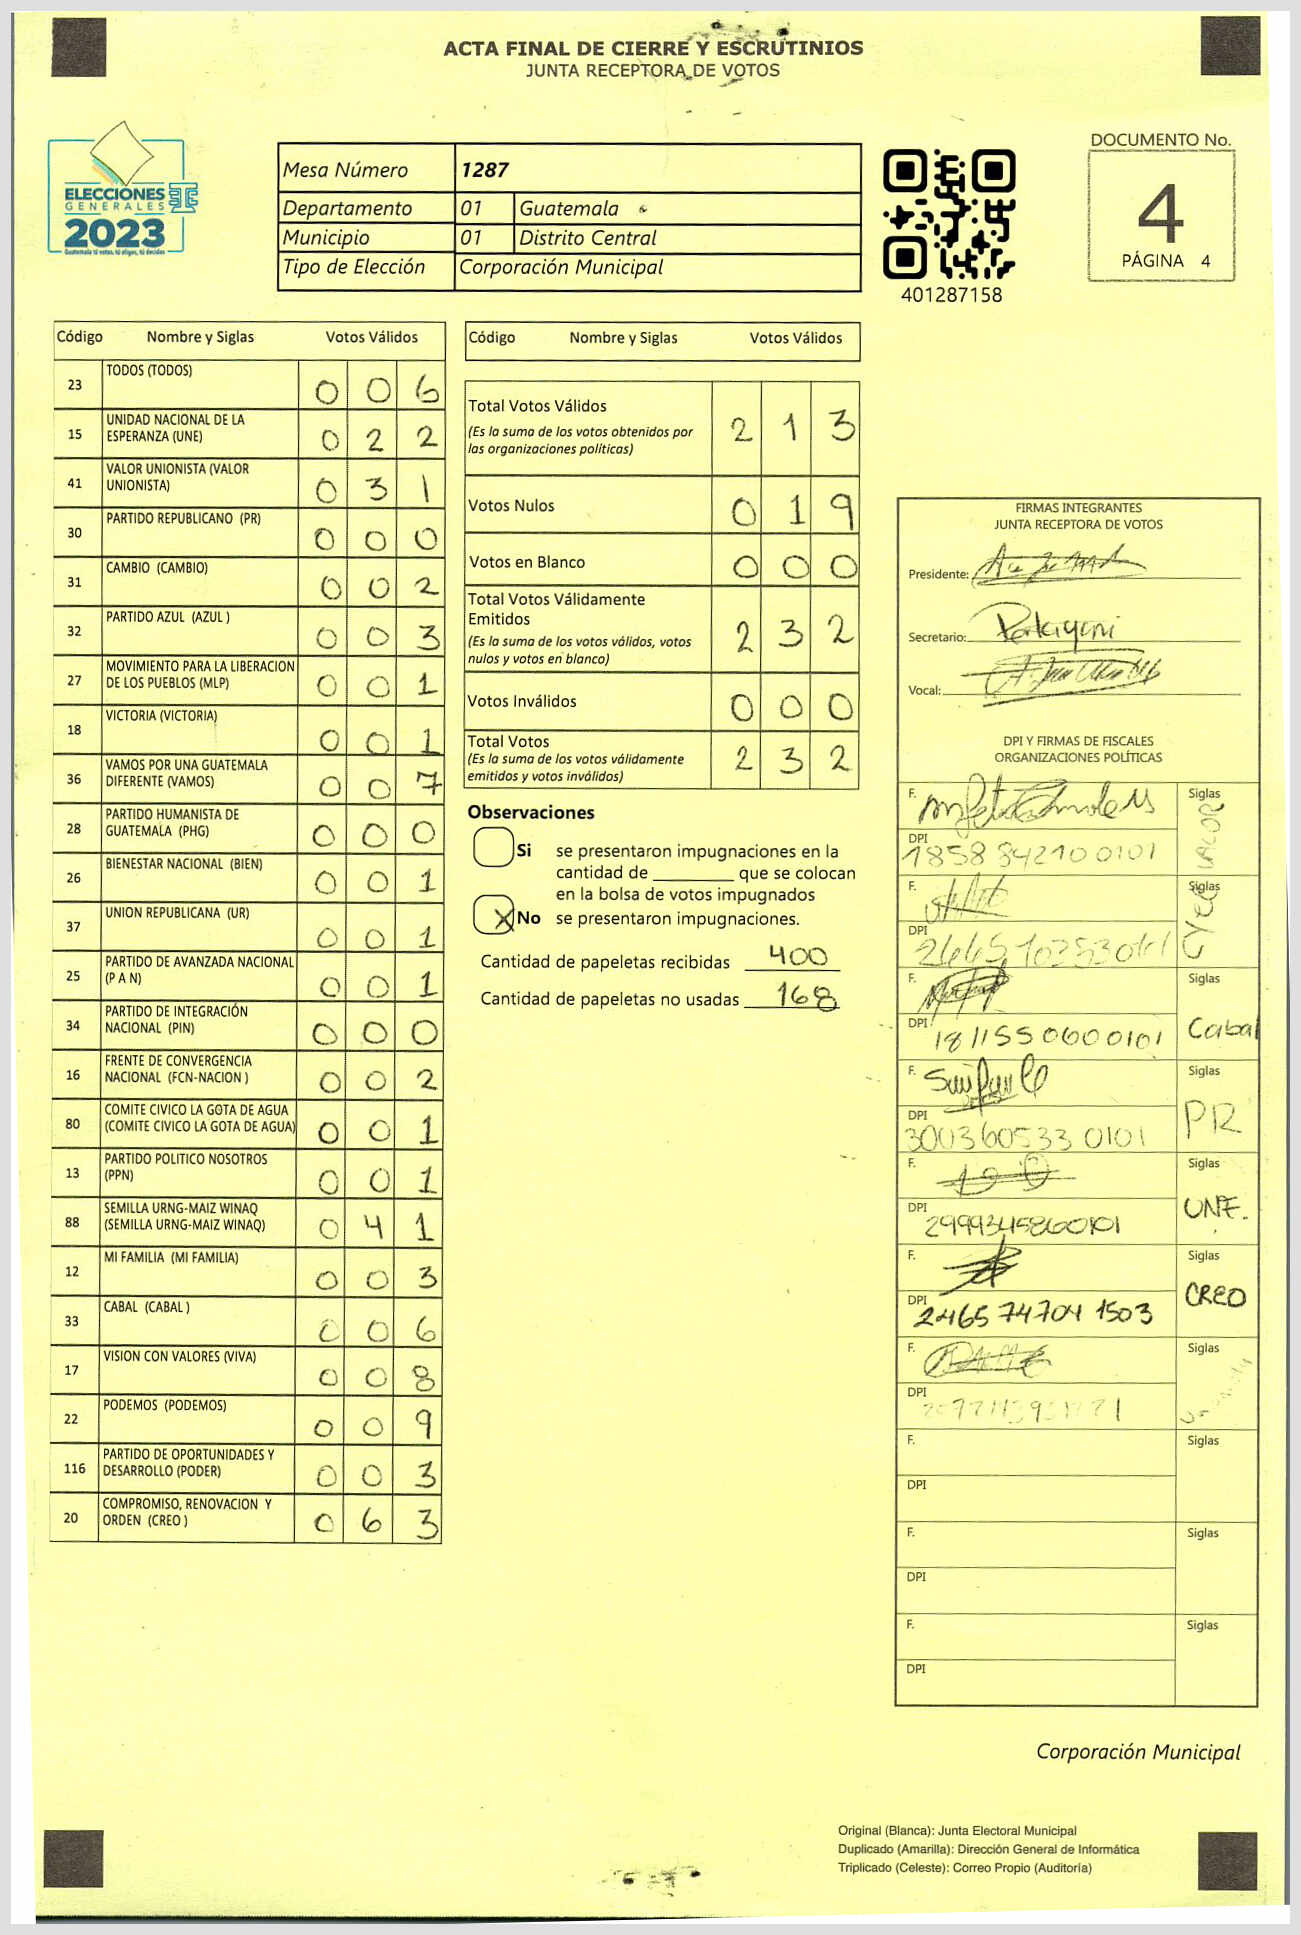 ACTA FINAL DE CIERRE Y ESCRUTINIOS
JUNTA RECEPTORA DE VOTOS
ELECCIONES
GENERALES
2023
Guatemala tú votas, tú eliges, tú decides
Mesa Número 1287
Departamento 01 Guatemala
Municipio 01 Distrito Central
Tipo de Elección Corporación Municipal
401287158
DOCUMENTO No.
4
PÁGINA 4
Código Nombre y Siglas Votos Válidos
23 TODOS (TODOS) 0 0 6
15 UNIDAD NACIONAL DE LA ESPERANZA (UNE) 0 2 2
41 VALOR UNIONISTA (VALOR UNIONISTA) 0 3 1
30 PARTIDO REPUBLICANO (PR) 0 0 0
31 CAMBIO (CAMBIO) 0 0 2
32 PARTIDO AZUL (AZUL ) 0 0 3
27 MOVIMIENTO PARA LA LIBERACION DE LOS PUEBLOS (MLP) 0 0 1
18 VICTORIA (VICTORIA) 0 0 1
36 VAMOS POR UNA GUATEMALA DIFERENTE (VAMOS) 0 0 7
28 PARTIDO HUMANISTA DE GUATEMALA (PHG) 0 0 0
26 BIENESTAR NACIONAL (BIEN) 0 0 1
37 UNION REPUBLICANA (UR) 0 0 1
25 PARTIDO DE AVANZADA NACIONAL (P A N) 0 0 1
34 PARTIDO DE INTEGRACIÓN NACIONAL (PIN) 0 0 0
16 FRENTE DE CONVERGENCIA NACIONAL (FCN-NACION ) 0 0 2
80 COMITE CIVICO LA GOTA DE AGUA (COMITE CIVICO LA GOTA DE AGUA) 0 0 1
13 PARTIDO POLITICO NOSOTROS (PPN) 0 0 1
88 SEMILLA URNG-MAIZ WINAQ (SEMILLA URNG-MAIZ WINAQ) 0 4 1
12 MI FAMILIA (MI FAMILIA) 0 0 3
33 CABAL (CABAL ) 0 0 6
17 VISION CON VALORES (VIVA) 0 0 8
22 PODEMOS (PODEMOS) 0 0 9
116 PARTIDO DE OPORTUNIDADES Y DESARROLLO (PODER) 0 0 3
20 COMPROMISO, RENOVACION Y ORDEN (CREO ) 0 6 3
Código Nombre y Siglas Votos Válidos
Total Votos Válidos 2 1 3
(Es la suma de los votos obtenidos por
las organizaciones políticas)
Votos Nulos 0 1 9
Votos en Blanco 0 0 0
Total Votos Válidamente
Emitidos 2 3 2
(Es la suma de los votos válidos, votos
nulos y votos en blanco)
Votos Inválidos 0 0 0
Total Votos 2 3 2
(Es la suma de los votos válidamente
emitidos y votos inválidos)
Observaciones
Si se presentaron impugnaciones en la
cantidad de ________ que se colocan
en la bolsa de votos impugnados
X No se presentaron impugnaciones.
Cantidad de papeletas recibidas 400
Cantidad de papeletas no usadas 168
FIRMAS INTEGRANTES
JUNTA RECEPTORA DE VOTOS
Presidente:
Secretario:
Vocal:
DPI Y FIRMAS DE FISCALES
ORGANIZACIONES POLÍTICAS
F. Siglas VALOR
DPI 1858 84210 0101
F. Siglas
DPI
F. Siglas Cabal
DPI 181155 0600101
F. Siglas PR
DPI 300360533 0101
F. Siglas UNE.
DPI 2999345860101
F. Siglas CREO
DPI 2465 74704 1503
F. Siglas
DPI
F. Siglas
DPI
F. Siglas
DPI
F. Siglas
DPI
Corporación Municipal
Original (Blanca): Junta Electoral Municipal
Duplicado (Amarilla): Dirección General de Informática
Triplicado (Celeste): Correo Propio (Auditoría)